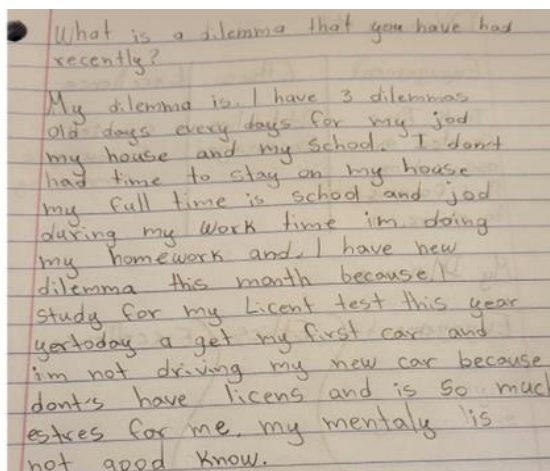 What is a dilemma that you have had
recently?
My dilemma is. I have 3 dilemmas
old days every days for my jod
my house and my school. I don't
had time to stay on my house
my full time is school and jod
during my work time im doing
my homework and, I have new
dilemma this month because I
study for my Licent test this year
yertoday a get my first car and
im not driving my new car because
dont's have licens and is so much
estres for me. my mentaly is
not good know.